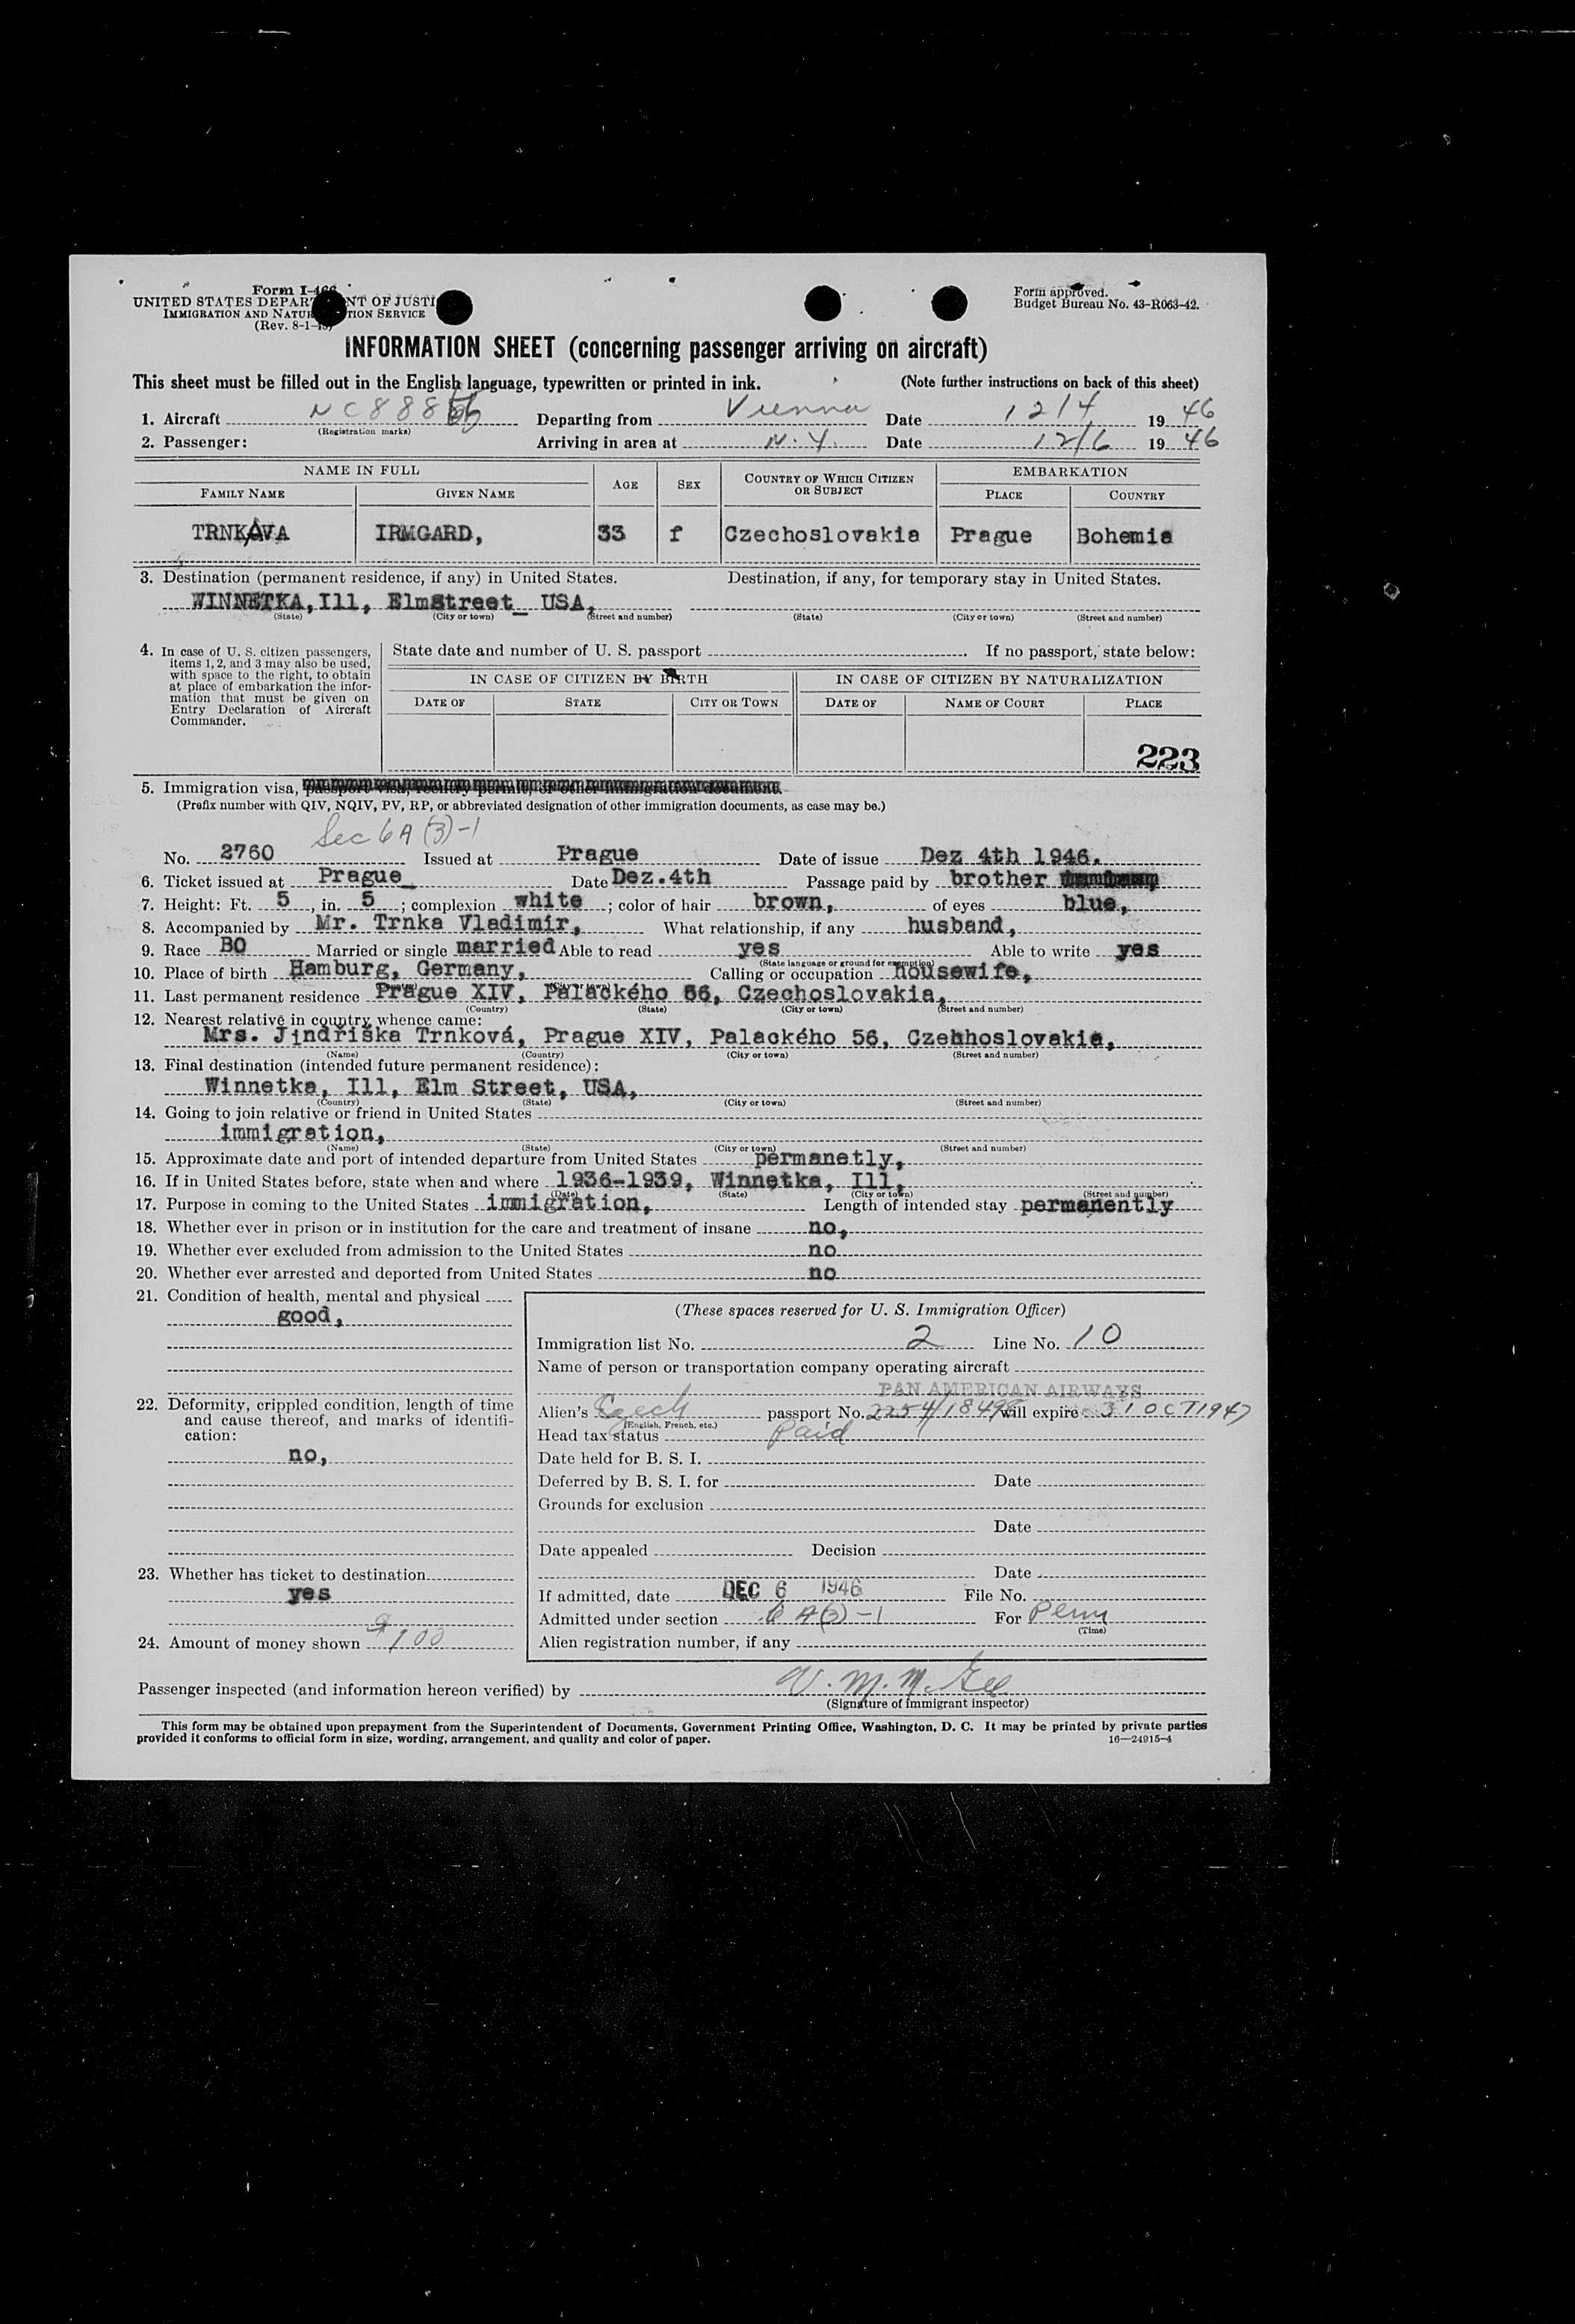 Form I-466
UNITED STATES DEPARTMENT OF JUSTICE
IMMIGRATION AND NATURALIZATION SERVICE
(Rev. 8-1-45)
Form approved.
Budget Bureau No. 43-R063-42.
INFORMATION SHEET (concerning passenger arriving on aircraft)
This sheet must be filled out in the English language, typewritten or printed in ink. (Note further instructions on back of this sheet)
1. Aircraft NC888 Departing from Vienna Date 12/4 1946
(Registration marks)
2. Passenger: Arriving in area at N.Y. Date 12/6 1946
NAME IN FULL AGE SEX COUNTRY OF WHICH CITIZEN OR SUBJECT EMBARKATION
FAMILY NAME GIVEN NAME PLACE COUNTRY
TRNKOVA IRMGARD, 33 f Czechoslovakia Prague Bohemia
3. Destination (permanent residence, if any) in United States. Destination, if any, for temporary stay in United States.
WINNETKA,Ill, ElmStreet_ USA,
(State) (City or town) (Street and number) (State) (City or town) (Street and number)
4. In case of U. S. citizen passengers, items 1, 2, and 3 may also be used, with space to the right, to obtain at place of embarkation the information that must be given on Entry Declaration of Aircraft Commander.
State date and number of U. S. passport . If no passport, state below:
IN CASE OF CITIZEN BY BIRTH IN CASE OF CITIZEN BY NATURALIZATION
DATE OF STATE CITY OR TOWN DATE OF NAME OF COURT PLACE
223
5. Immigration visa, passport visa, reentry permit, or other immigration document.
(Prefix number with QIV, NQIV, PV, RP, or abbreviated designation of other immigration documents, as case may be.)
Sec 6A(3)-1
No. 2760 Issued at Prague Date of issue Dez 4th 1946.
6. Ticket issued at Prague_ Date Dez.4th Passage paid by brother
7. Height: Ft. 5, in. 5; complexion white; color of hair brown, of eyes blue,
8. Accompanied by Mr. Trnka Vladimír, What relationship, if any husband,
9. Race BO Married or single married Able to read yes Able to write yes
(State language or ground for exemption)
10. Place of birth Hamburg, Germany, Calling or occupation housewife,
11. Last permanent residence Prague XIV, Palackého 56, Czechoslovakia,
(Country) (State) (City or town) (Street and number)
12. Nearest relative in country whence came:
Mrs. Jindřiška Trnková, Prague XIV, Palackého 56, Czehhoslovakia,
(Name) (Country) (City or town) (Street and number)
13. Final destination (intended future permanent residence):
Winnetka, Ill, Elm Street, USA,
(Country) (State) (City or town) (Street and number)
14. Going to join relative or friend in United States
immigration,
(Name) (State) (City or town) (Street and number)
15. Approximate date and port of intended departure from United States permanetly,
16. If in United States before, state when and where 1936-1939, Winnetka, Ill,
(Date) (State) (City or town) (Street and number)
17. Purpose in coming to the United States immigration, Length of intended stay permanently
18. Whether ever in prison or in institution for the care and treatment of insane no,
19. Whether ever excluded from admission to the United States no
20. Whether ever arrested and deported from United States no
21. Condition of health, mental and physical
good,
22. Deformity, crippled condition, length of time and cause thereof, and marks of identification:
no,
23. Whether has ticket to destination
yes
24. Amount of money shown $100
(These spaces reserved for U. S. Immigration Officer)
Immigration list No. 2 Line No. 10
Name of person or transportation company operating aircraft
PAN AMERICAN AIRWAYS
Alien's Czech passport No. 2254/18498 will expire 31 OCT 1947
(English, French, etc.)
Head tax status Paid
Date held for B. S. I.
Deferred by B. S. I. for Date
Grounds for exclusion
Date
Date appealed Decision
Date
If admitted, date DEC 6 1946 File No.
Admitted under section 6 A(3)-1 For Perm
(Time)
Alien registration number, if any
Passenger inspected (and information hereon verified) by V. M. McGee
(Signature of immigrant inspector)
This form may be obtained upon prepayment from the Superintendent of Documents, Government Printing Office, Washington, D. C. It may be printed by private parties
provided it conforms to official form in size, wording, arrangement, and quality and color of paper. 16—24915-4